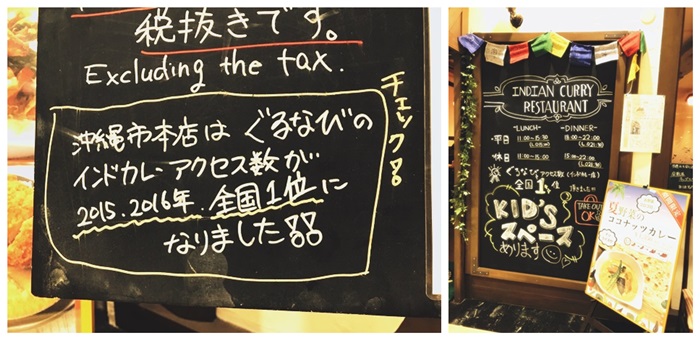 税抜きです。
Excluding the tax.
チェック
沖縄市本店は ぐるなびの
インドカレーアクセス数が
2015.2016年.全国1位に
なりました
INDIAN CURRY
RESTAURANT
-LUNCH- -DINNER-
平日 11:00~15:30 18:00~22:00
休日 11:00~15:00 15:00~22:00
ぐるなびアクセス数
全国1位
TAKE OUT
OK
KID'S
スペース
あります
夏野菜の
ココナッツカレー